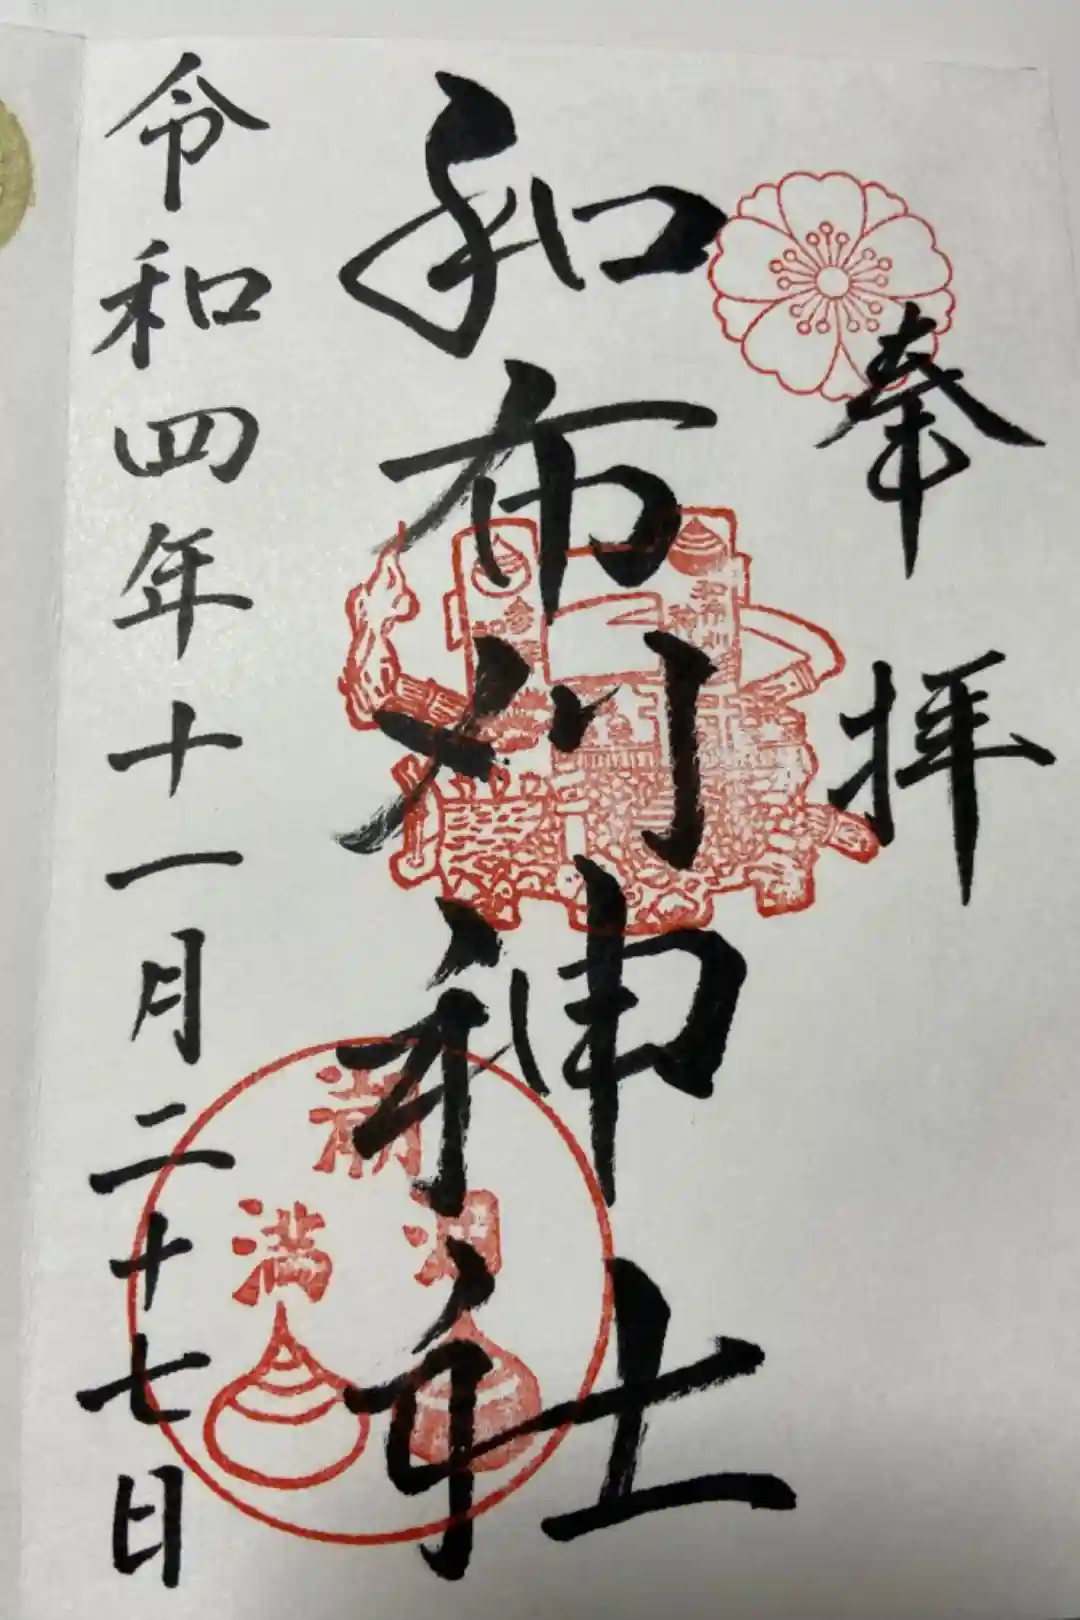 奉拝
和布刈神社
令和四年十一月二十七日
潮
満